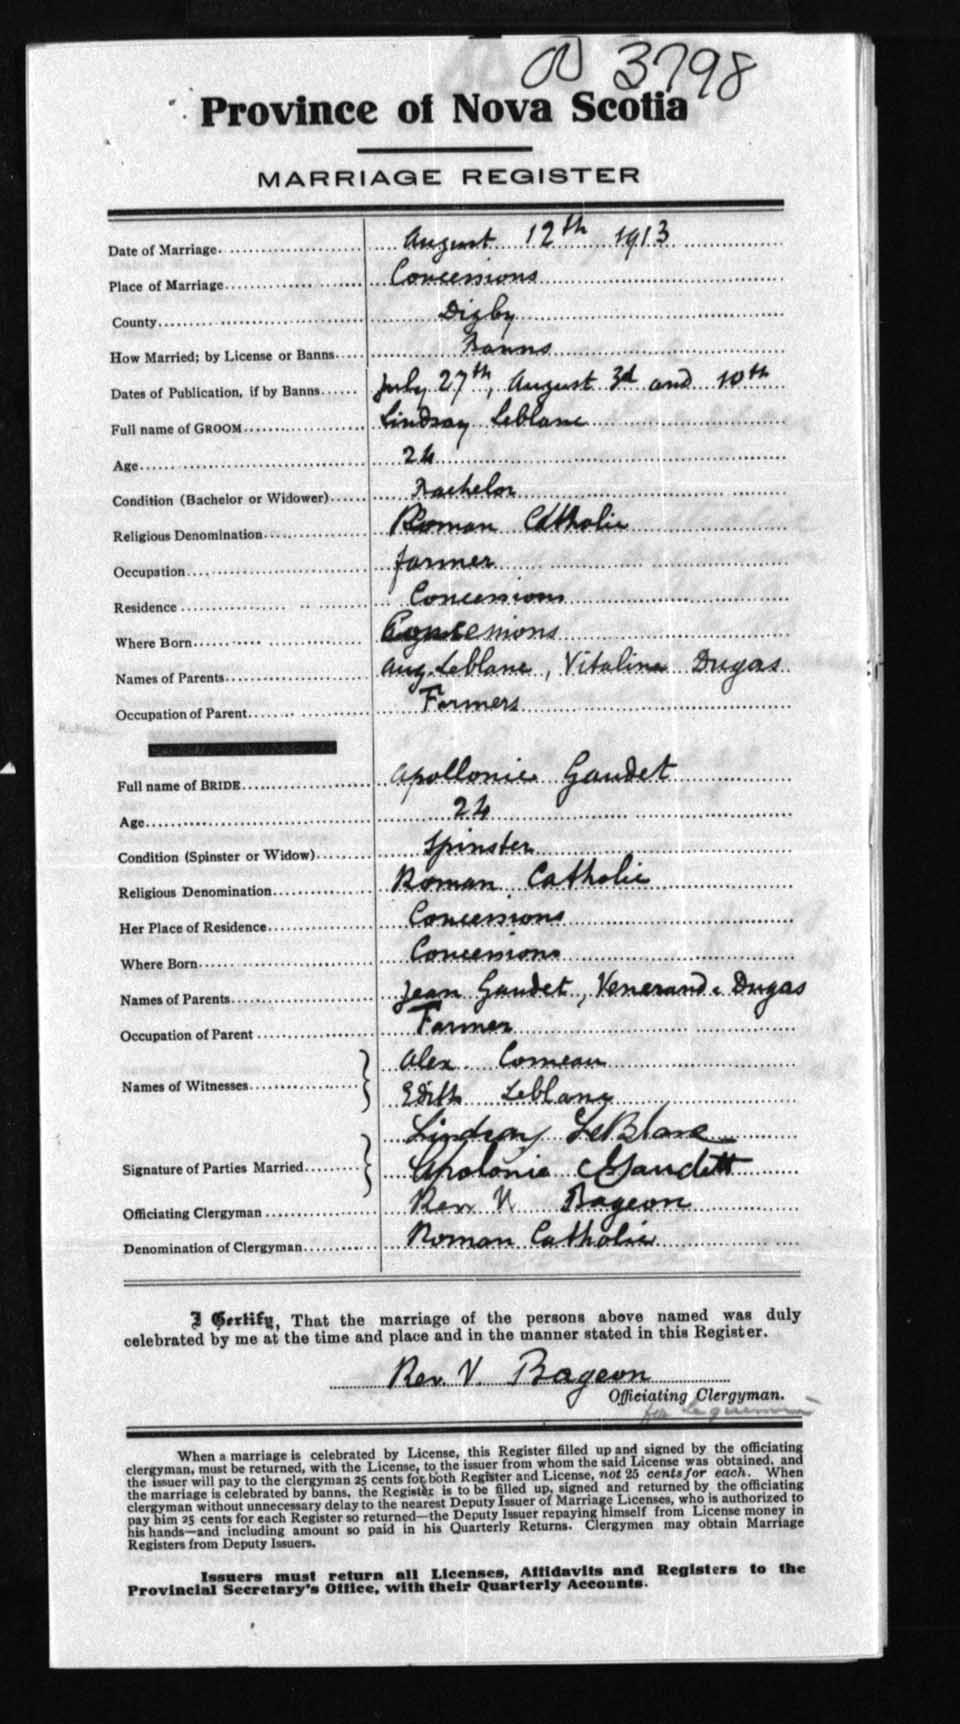 3798
Province of Nova Scotia
MARRIAGE REGISTER
Date of Marriage August 12th 1913
Place of Marriage Concessions
County Digby
How Married; by License or Banns Banns
Dates of Publication, if by Banns July 27th, August 3d and 10th
Full name of GROOM Lindsay Leblanc
Age 24
Condition (Bachelor or Widower) Bachelor
Religious Denomination Roman Catholic
Occupation farmer
Residence Concessions
Where Born Concessions
Names of Parents Aug. Leblanc, Vitaline Dugas
Occupation of Parent Farmers
Full name of BRIDE Apollonie Gaudet
Age 24
Condition (Spinster or Widow) Spinster
Religious Denomination Roman Catholic
Her Place of Residence Concessions
Where Born Concessions
Names of Parents Jean Gaudet, Venerande Dugas
Occupation of Parent Farmer
Names of Witnesses Alex. Comeau
Edith Leblanc
Signature of Parties Married Lindsay LeBlanc
Apolonie Gaudett
Officiating Clergyman Rev V Bageon
Denomination of Clergyman Roman Catholic
I Certify, That the marriage of the persons above named was duly
celebrated by me at the time and place and in the manner stated in this Register.
Rev. V. Bageon
Officiating Clergyman.
When a marriage is celebrated by License, this Register filled up and signed by the officiating
clergyman, must be returned, with the License, to the issuer from whom the said License was obtained, and
the issuer will pay to the clergyman 25 cents for both Register and License, not 25 cents for each. When
the marriage is celebrated by banns, the Register is to be filled up, signed and returned by the officiating
clergyman without unnecessary delay to the nearest Deputy Issuer of Marriage Licenses, who is authorized to
pay him 25 cents for each Register so returned—the Deputy Issuer repaying himself from License money in
his hands—and including amount so paid in his Quarterly Returns. Clergymen may obtain Marriage
Registers from Deputy Issuers.
Issuers must return all Licenses, Affidavits and Registers to the
Provincial Secretary's Office, with their Quarterly Accounts.